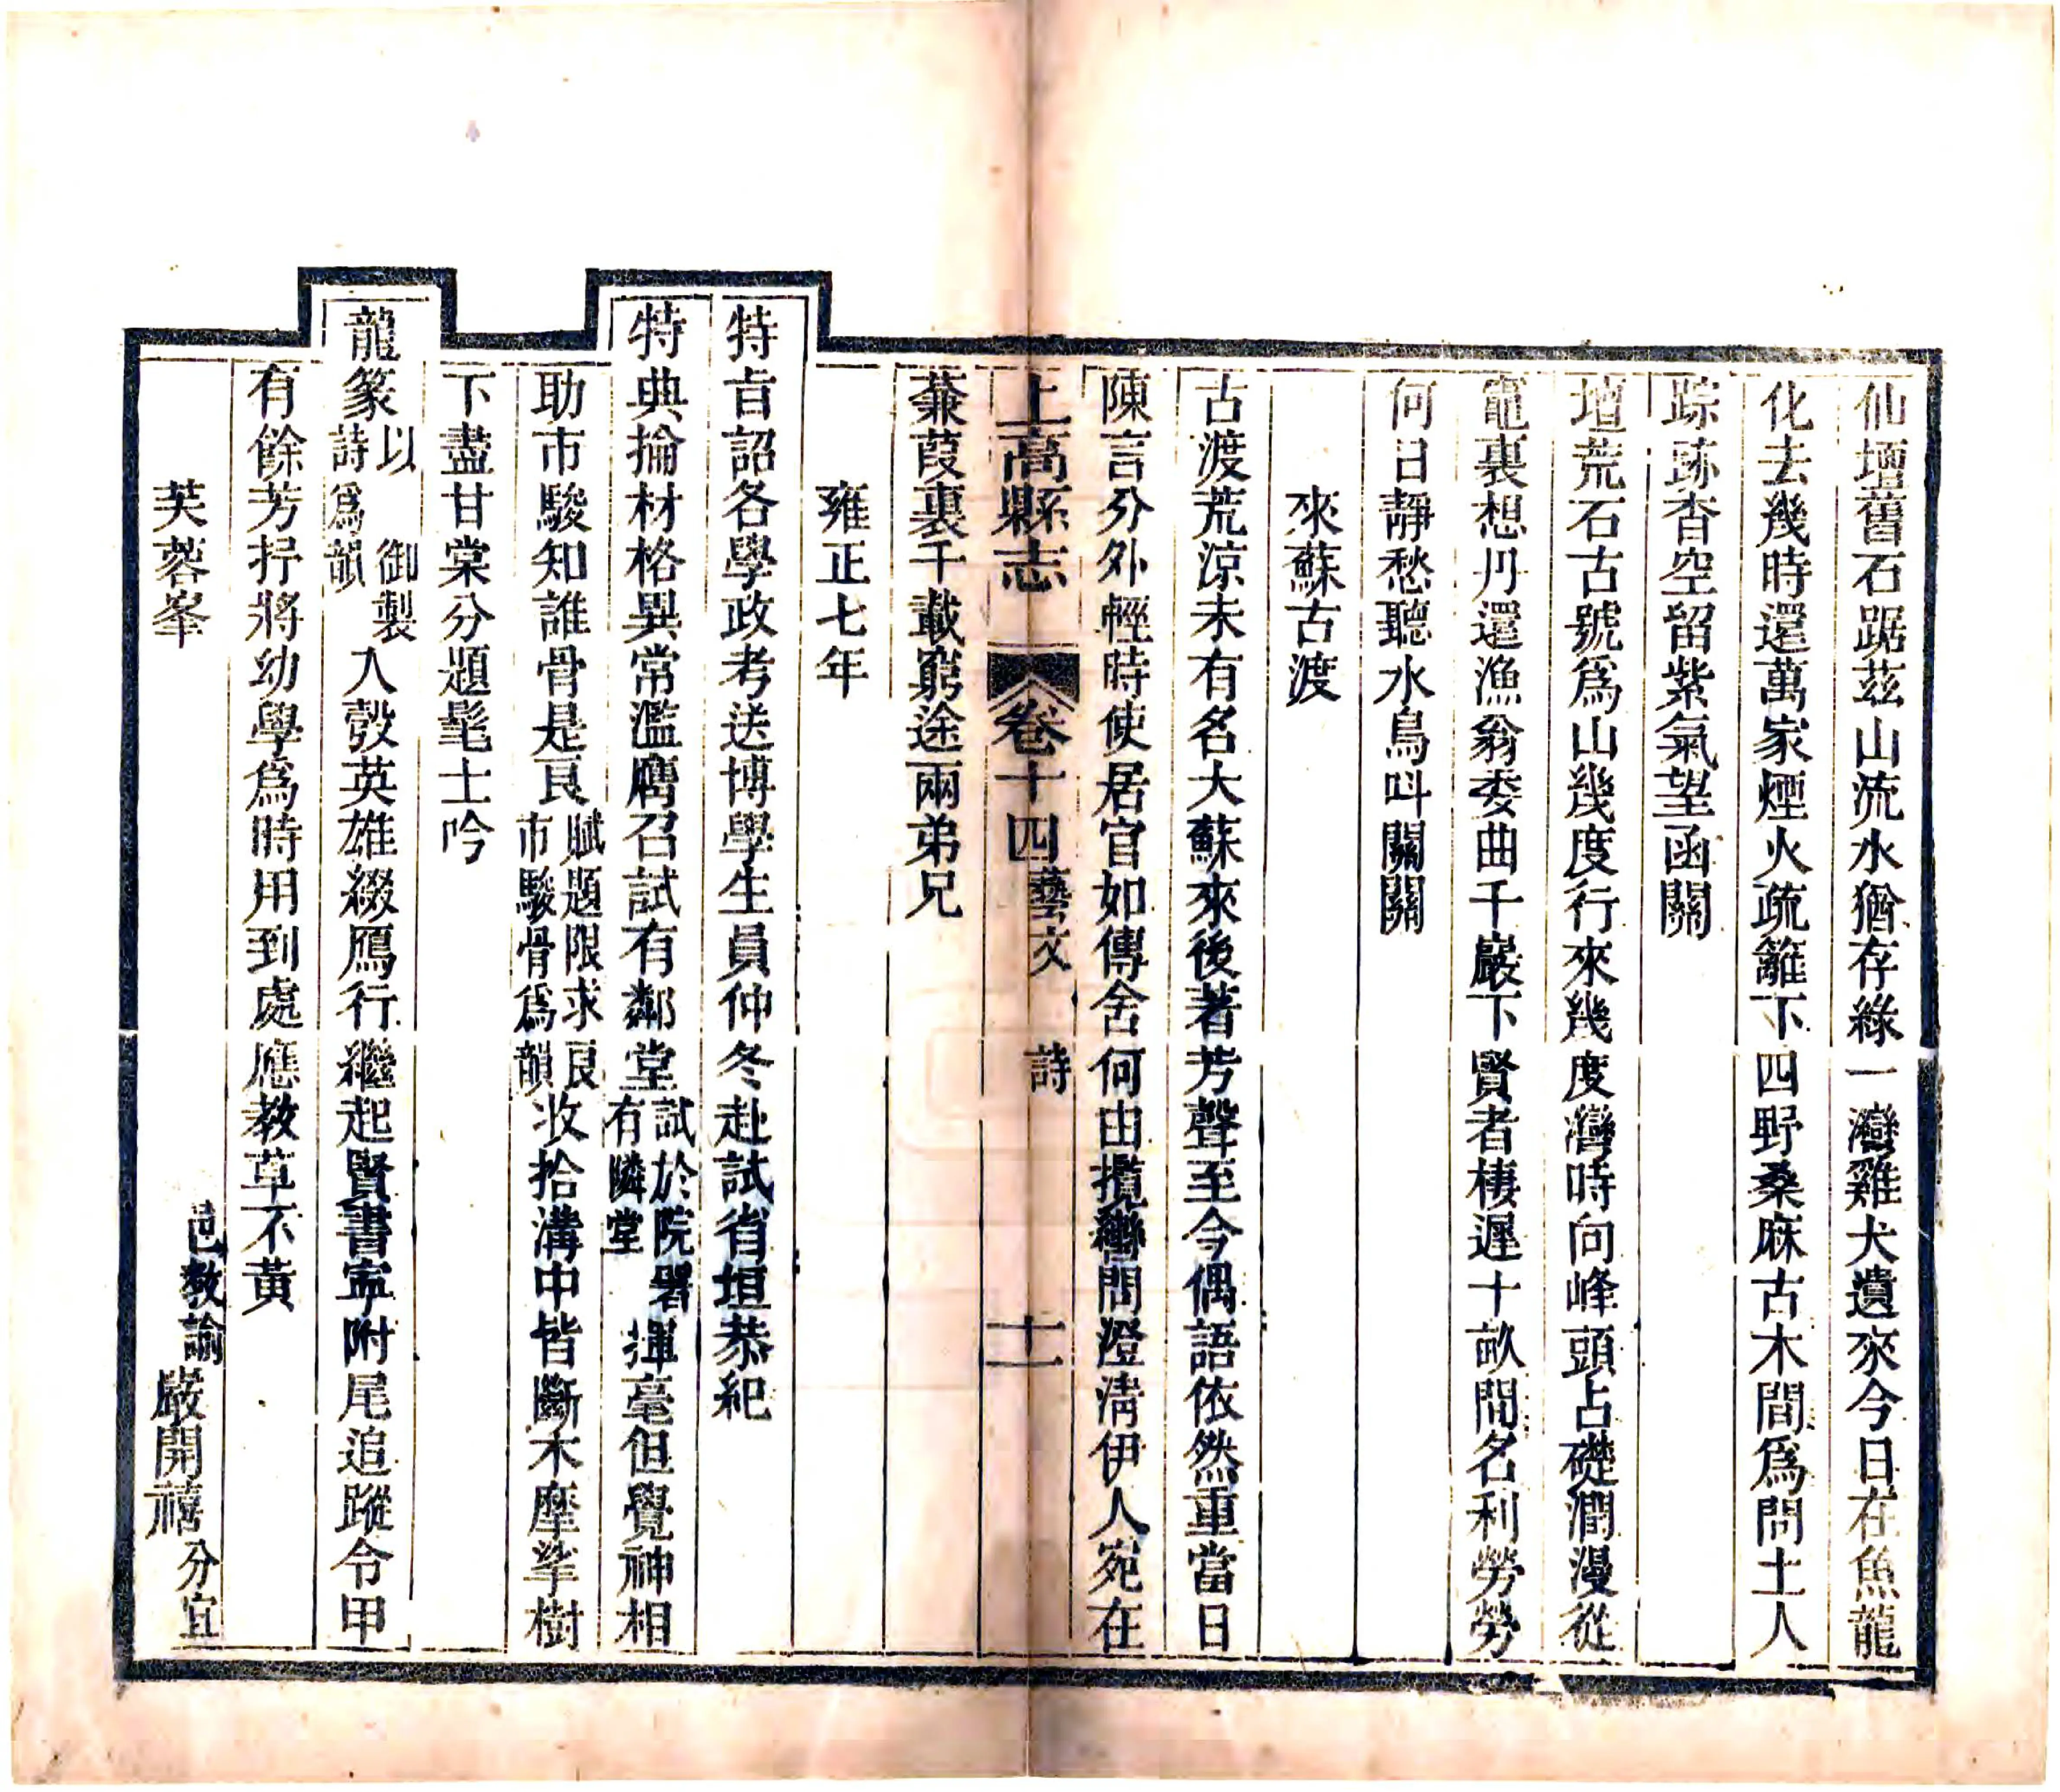 仙壇舊石踞茲山流水猶存綠一灣雞犬遺來今日在魚龍
化去幾時還萬家煙火疏籬下四野桑麻古木間爲問土人
踪跡杳空留紫氣望函關
壇荒石古號爲山幾度行來幾度灣時向峰頭占礎潤漫從
竈裏想丹還漁翁委曲千巖下賢者棲遲十畝間名利勞勞
何日靜愁聽水鳥呌關關
來蘇古渡
古渡荒涼未有名大蘇來後著芳聲至今偶語依然重當日
陳言分外輕時使居官如傳舍何由攬轡問澄清伊人宛在
蒹葭裏千載窮途兩弟兄
上高縣志 卷十四藝文 詩 十一
雍正七年
特㫖詔各學政考送博學生員仲冬赴試省垣恭紀
特典掄材格異常濫膺召試有鄰堂試於院署有隣堂揮毫但覺神相
助市駿知誰骨是良賦題限求良市駿骨爲韻收拾溝中皆斷木摩挲樹
下盡甘棠分題髦士吟
龍篆以 御製詩爲韻入彀英雄綴鴈行繼起賢書寧附尾追蹤令甲
有餘芳抒將幼學爲時用到處應教草不黃
芙蓉峯 邑教諭嚴開禧分宜